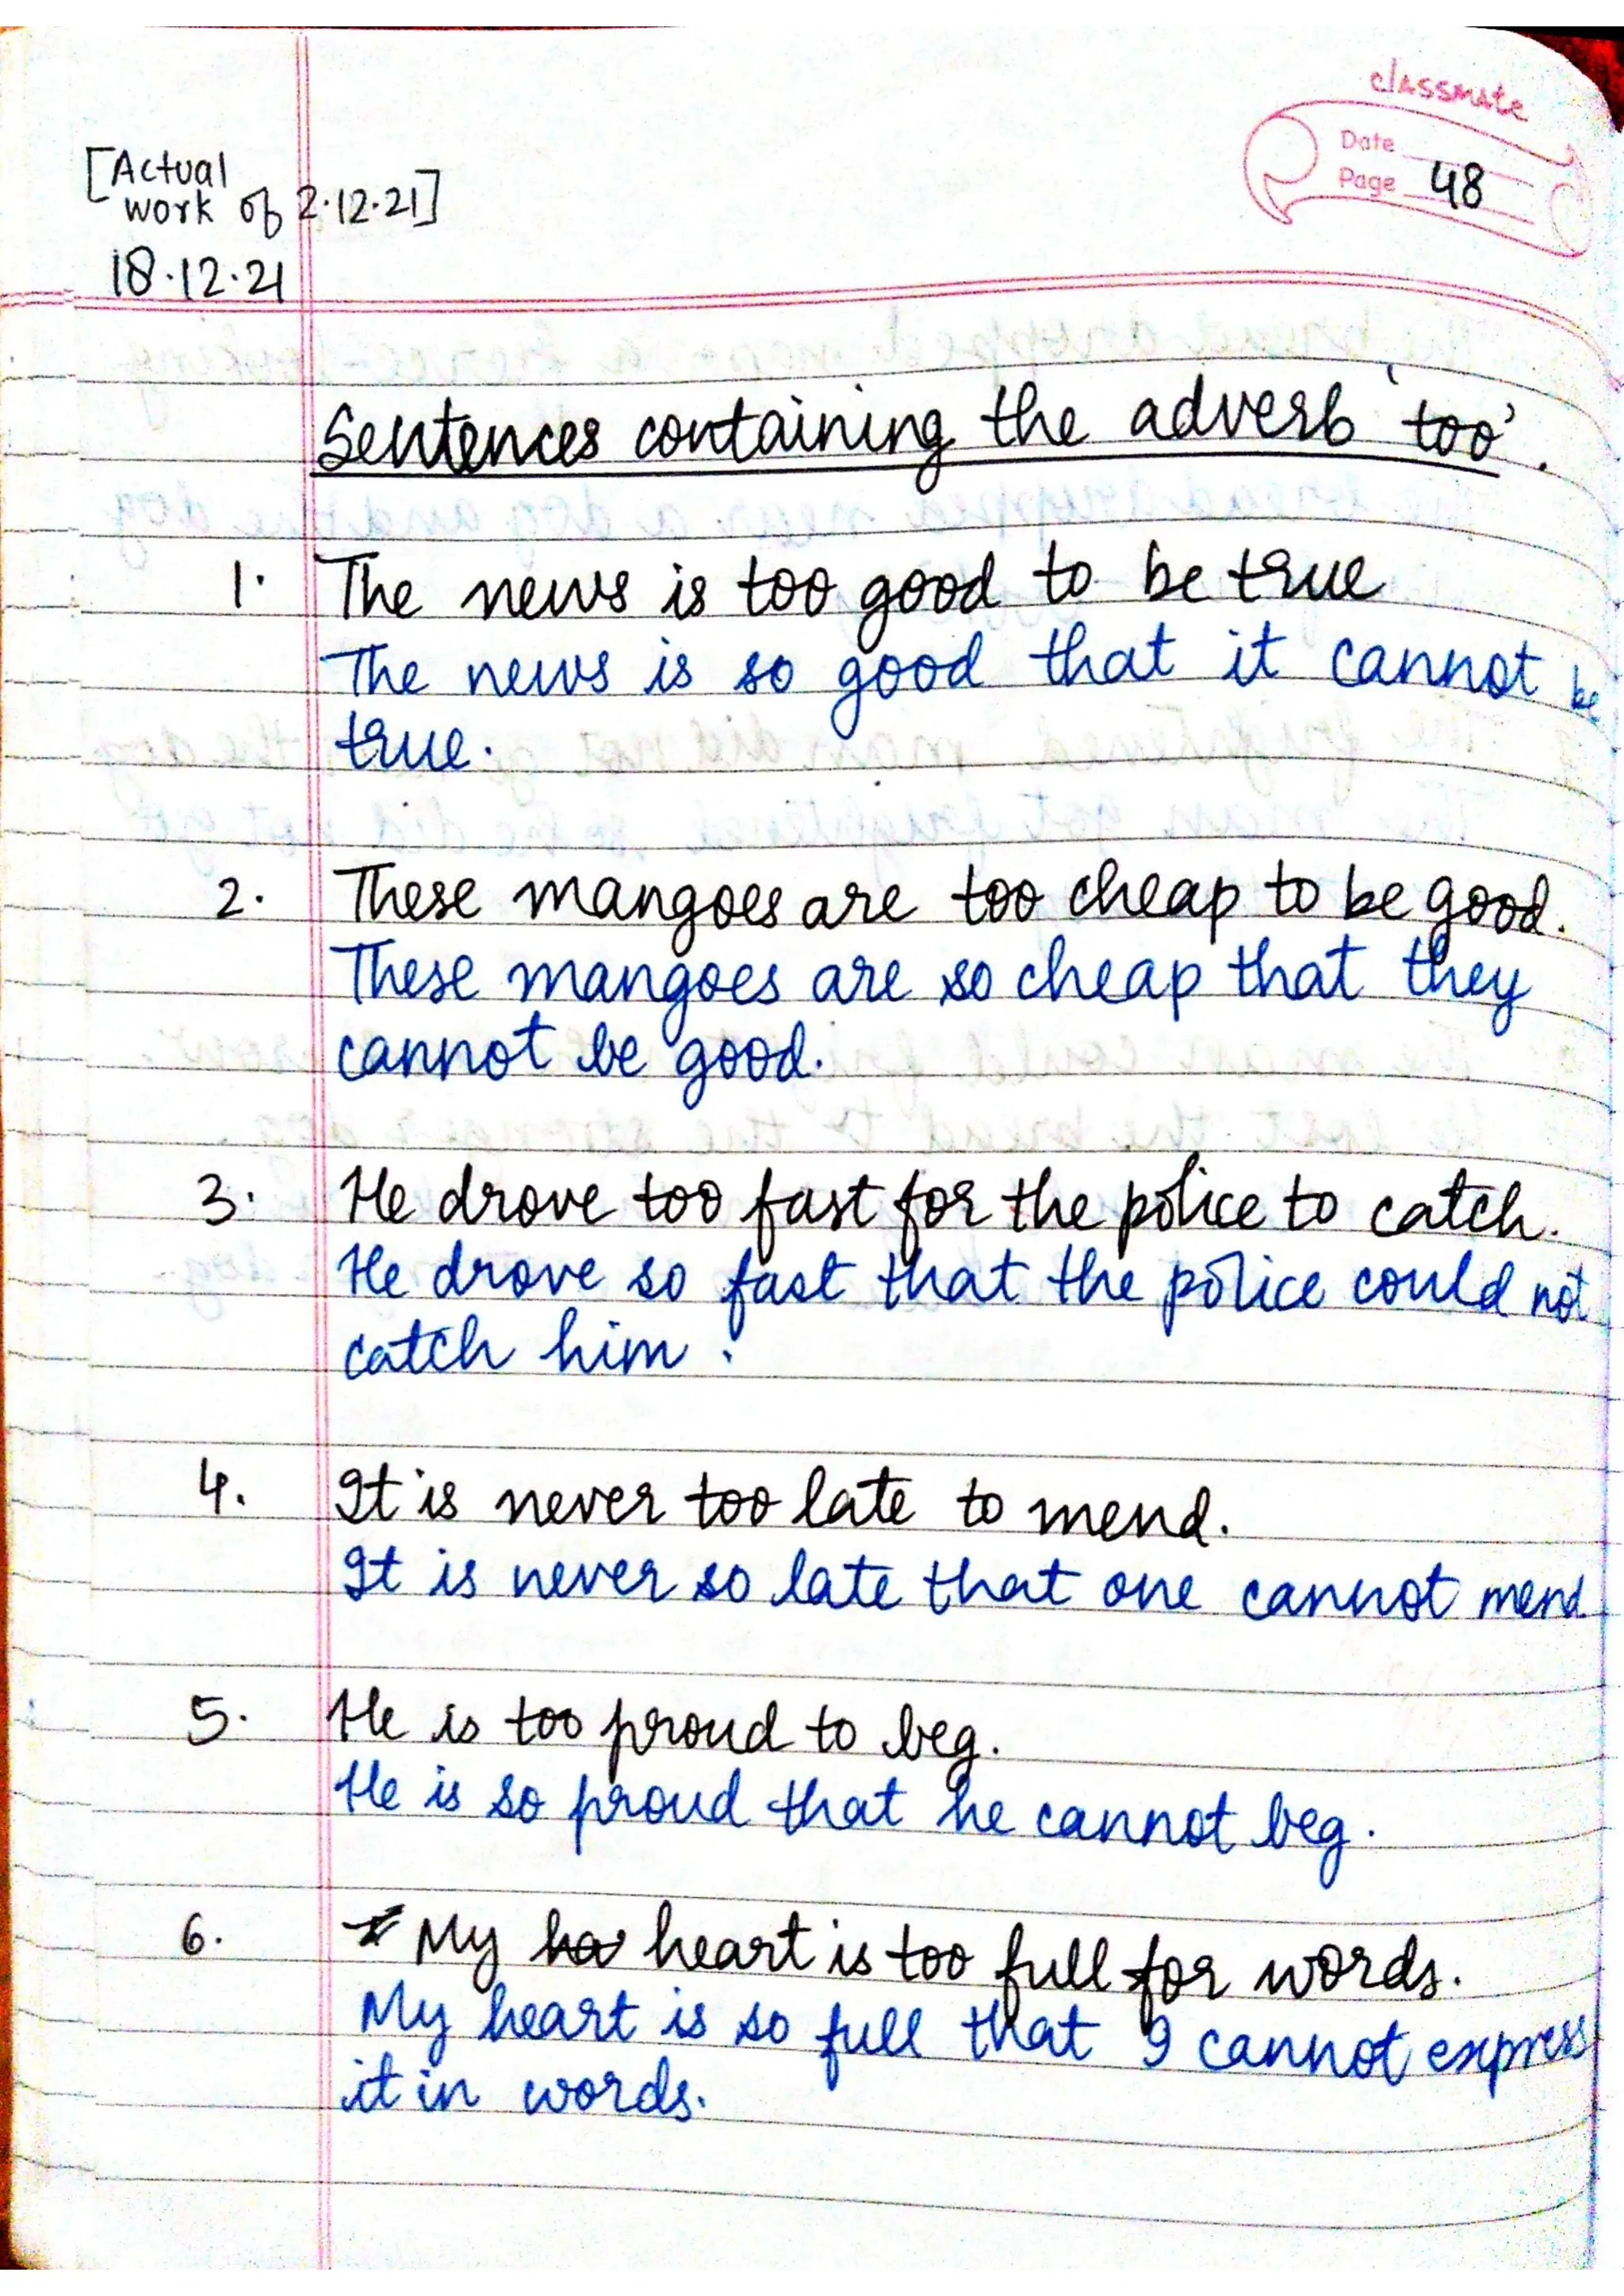 classmate
Date
Page 48
[Actual
work of 2.12.21]
18.12.21
Sentences containing the adverb 'too'.
1. The news is too good to be true
The news is so good that it cannot be
true.
2. These mangoes are too cheap to be good.
These mangoes are so cheap that they
cannot be good.
3. He drove too fast for the police to catch.
He drove so fast that the police could not
catch him.
4. It is never too late to mend.
It is never so late that one cannot mend.
5. He is too proud to beg.
He is so proud that he cannot beg.
6. My heart is too full for words.
My heart is so full that I cannot express
it in words.